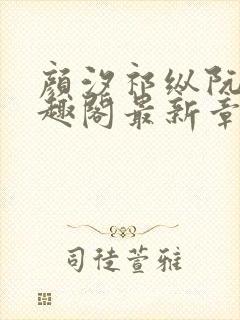 颜汐祁纵阮
趣阁最新章
司徒萱雅